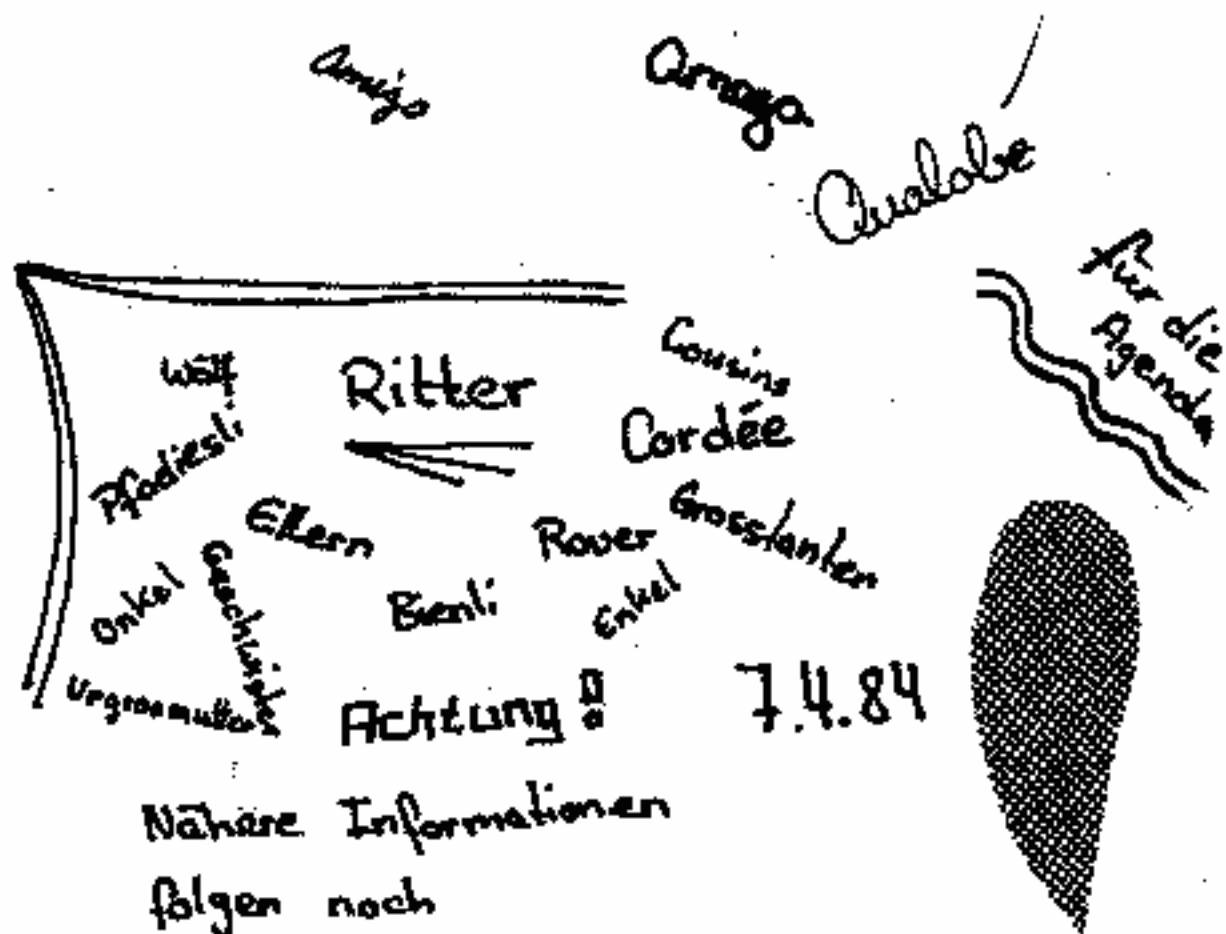 Amigo
Arnaga
Qualobe
für die
Agenda
Wölf
Ritter
Cousins
Cordée
Pfadiesli
Eltern
Rover
Grosstanten
Onkel
Geschwister
Bienli
Enkel
Urgrossmutter
Achtung!
7.4.84
Nähere Informationen
folgen noch